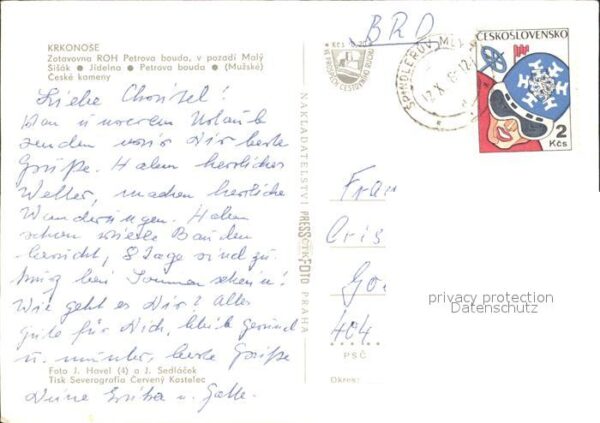 BRD
KRKONOSE
Zotavovna ROH Petrova bouda, v pozadí Malý
Šišák ● Jídelna ● Petrova bouda ● (Mužské)
České kameny
Kčs
VE PROSPĚCH CESTOVNÍHO RUCHU
ČESKOSLOVENSKO
2
Kčs
ŠPINDLERŮV MLÝN
12.X.
Liebe Christel!
Von unserem Urlaub
senden wir Dir herzl.
Grüße. Haben herrliches
Wetter, machen herrliche
Wanderungen. Haben
schon viele Bauden
besucht, 8 Tage sind zu
wenig bei Sonnenschein!
Wie geht es Dir? Alles
Gute für Dich, bleib gesund
u. munter, herzl. Grüße
Deine Erika u.
NAKLADATELSTVÍ PRESSFOTO PRAHA
ČTK
Frau
Cris
Go
404
PSČ
Okres:
privacy protection
Datenschutz
Foto J. Havel (4) a J. Sedláček
Tisk Severografia Červený Kostelec